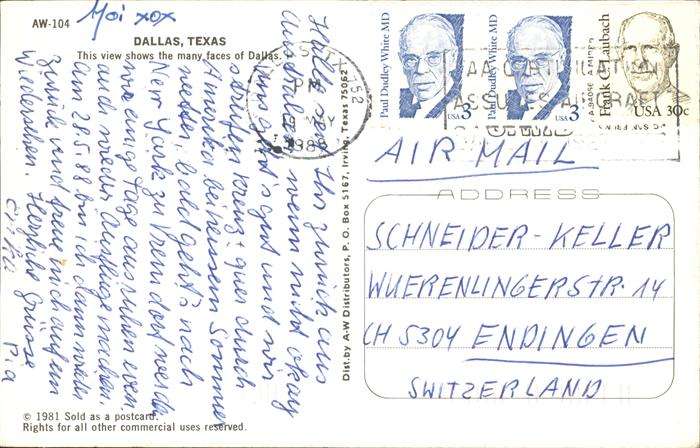 AW-104
DALLAS, TEXAS
This view shows the many faces of Dallas.
Hoi xox
Hallo seid Ihr zurück aus
Australien wenn nicht okay
Uns geht's gut und wir
streifen kreuz + quer durch
Amerika bei heissem Sonne
wetter. Bald geht's nach
New York zu Vreni dort werde
ein einige Tage ausruhen even.
und wieder Ausflüge machen.
Am 2.5.88 bin ich dann wieder
zurück und freue mich auf ein
Wiedersehen. Herzliche Grüsse
Pia
© 1981 Sold as a postcard.
Rights for all other commercial uses reserved.
Dist. by A-W Distributors, P. O. Box 5167, Irving, Texas 75062
PM
MAY
1988
752
Paul Dudley White MD
USA 3
Paul Dudley White MD
USA 3
Frank C. Laubach
USA 30c
AIR MAIL
ADDRESS
SCHNEIDER-KELLER
WUERENLINGERSTR. 14
CH 5304 ENDINGEN
SWITZERLAND